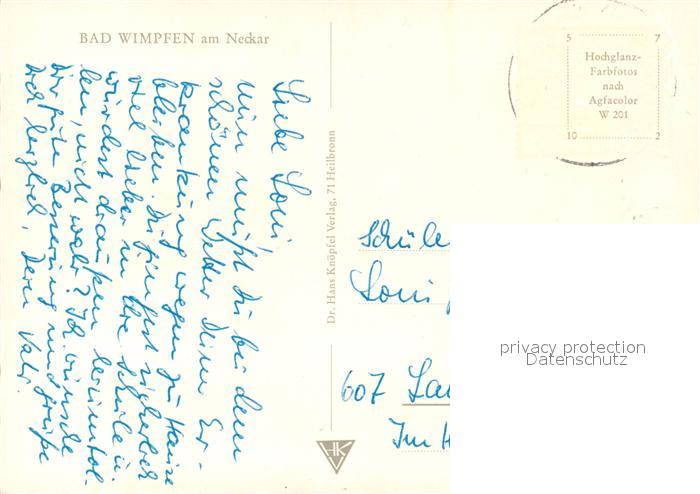 BAD WIMPFEN am Neckar
Liebe Loni,
nun mußt Du bei dem
schönen Wetter Deiner Er-
krankung wegen zu Hause
bleiben. Du gingst sicherlich
viel lieber in die Schule u.
würdest draußen herumtol-
len, nicht wahr? Ich wünsche
Dir gute Besserung und grüße
Dich herzlich, Dein Vati.
Dr. Hans Knöpfel Verlag, 71 Heilbronn
HK
5 7
Hochglanz-
Farbfotos
nach
Agfacolor
W 201
10 2
Schüle
Loni
607 Lan
Im H
privacy protection
Datenschutz